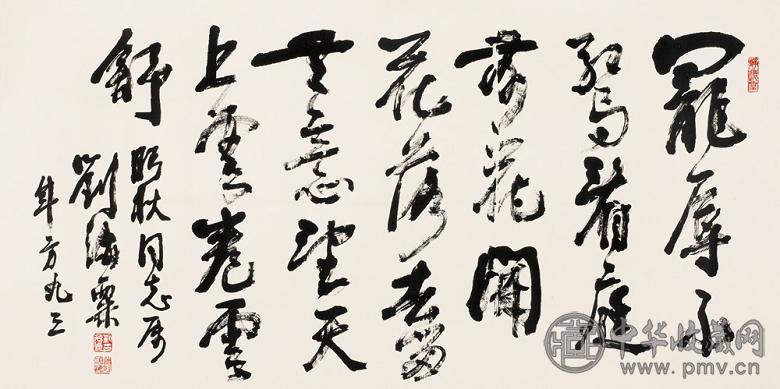 寵辱不
驚看庭
前花開
花落去留
無意望天
上雲卷雲
舒
同志属
劉海粟
年方九三
中华收藏网
www.pmv.cn